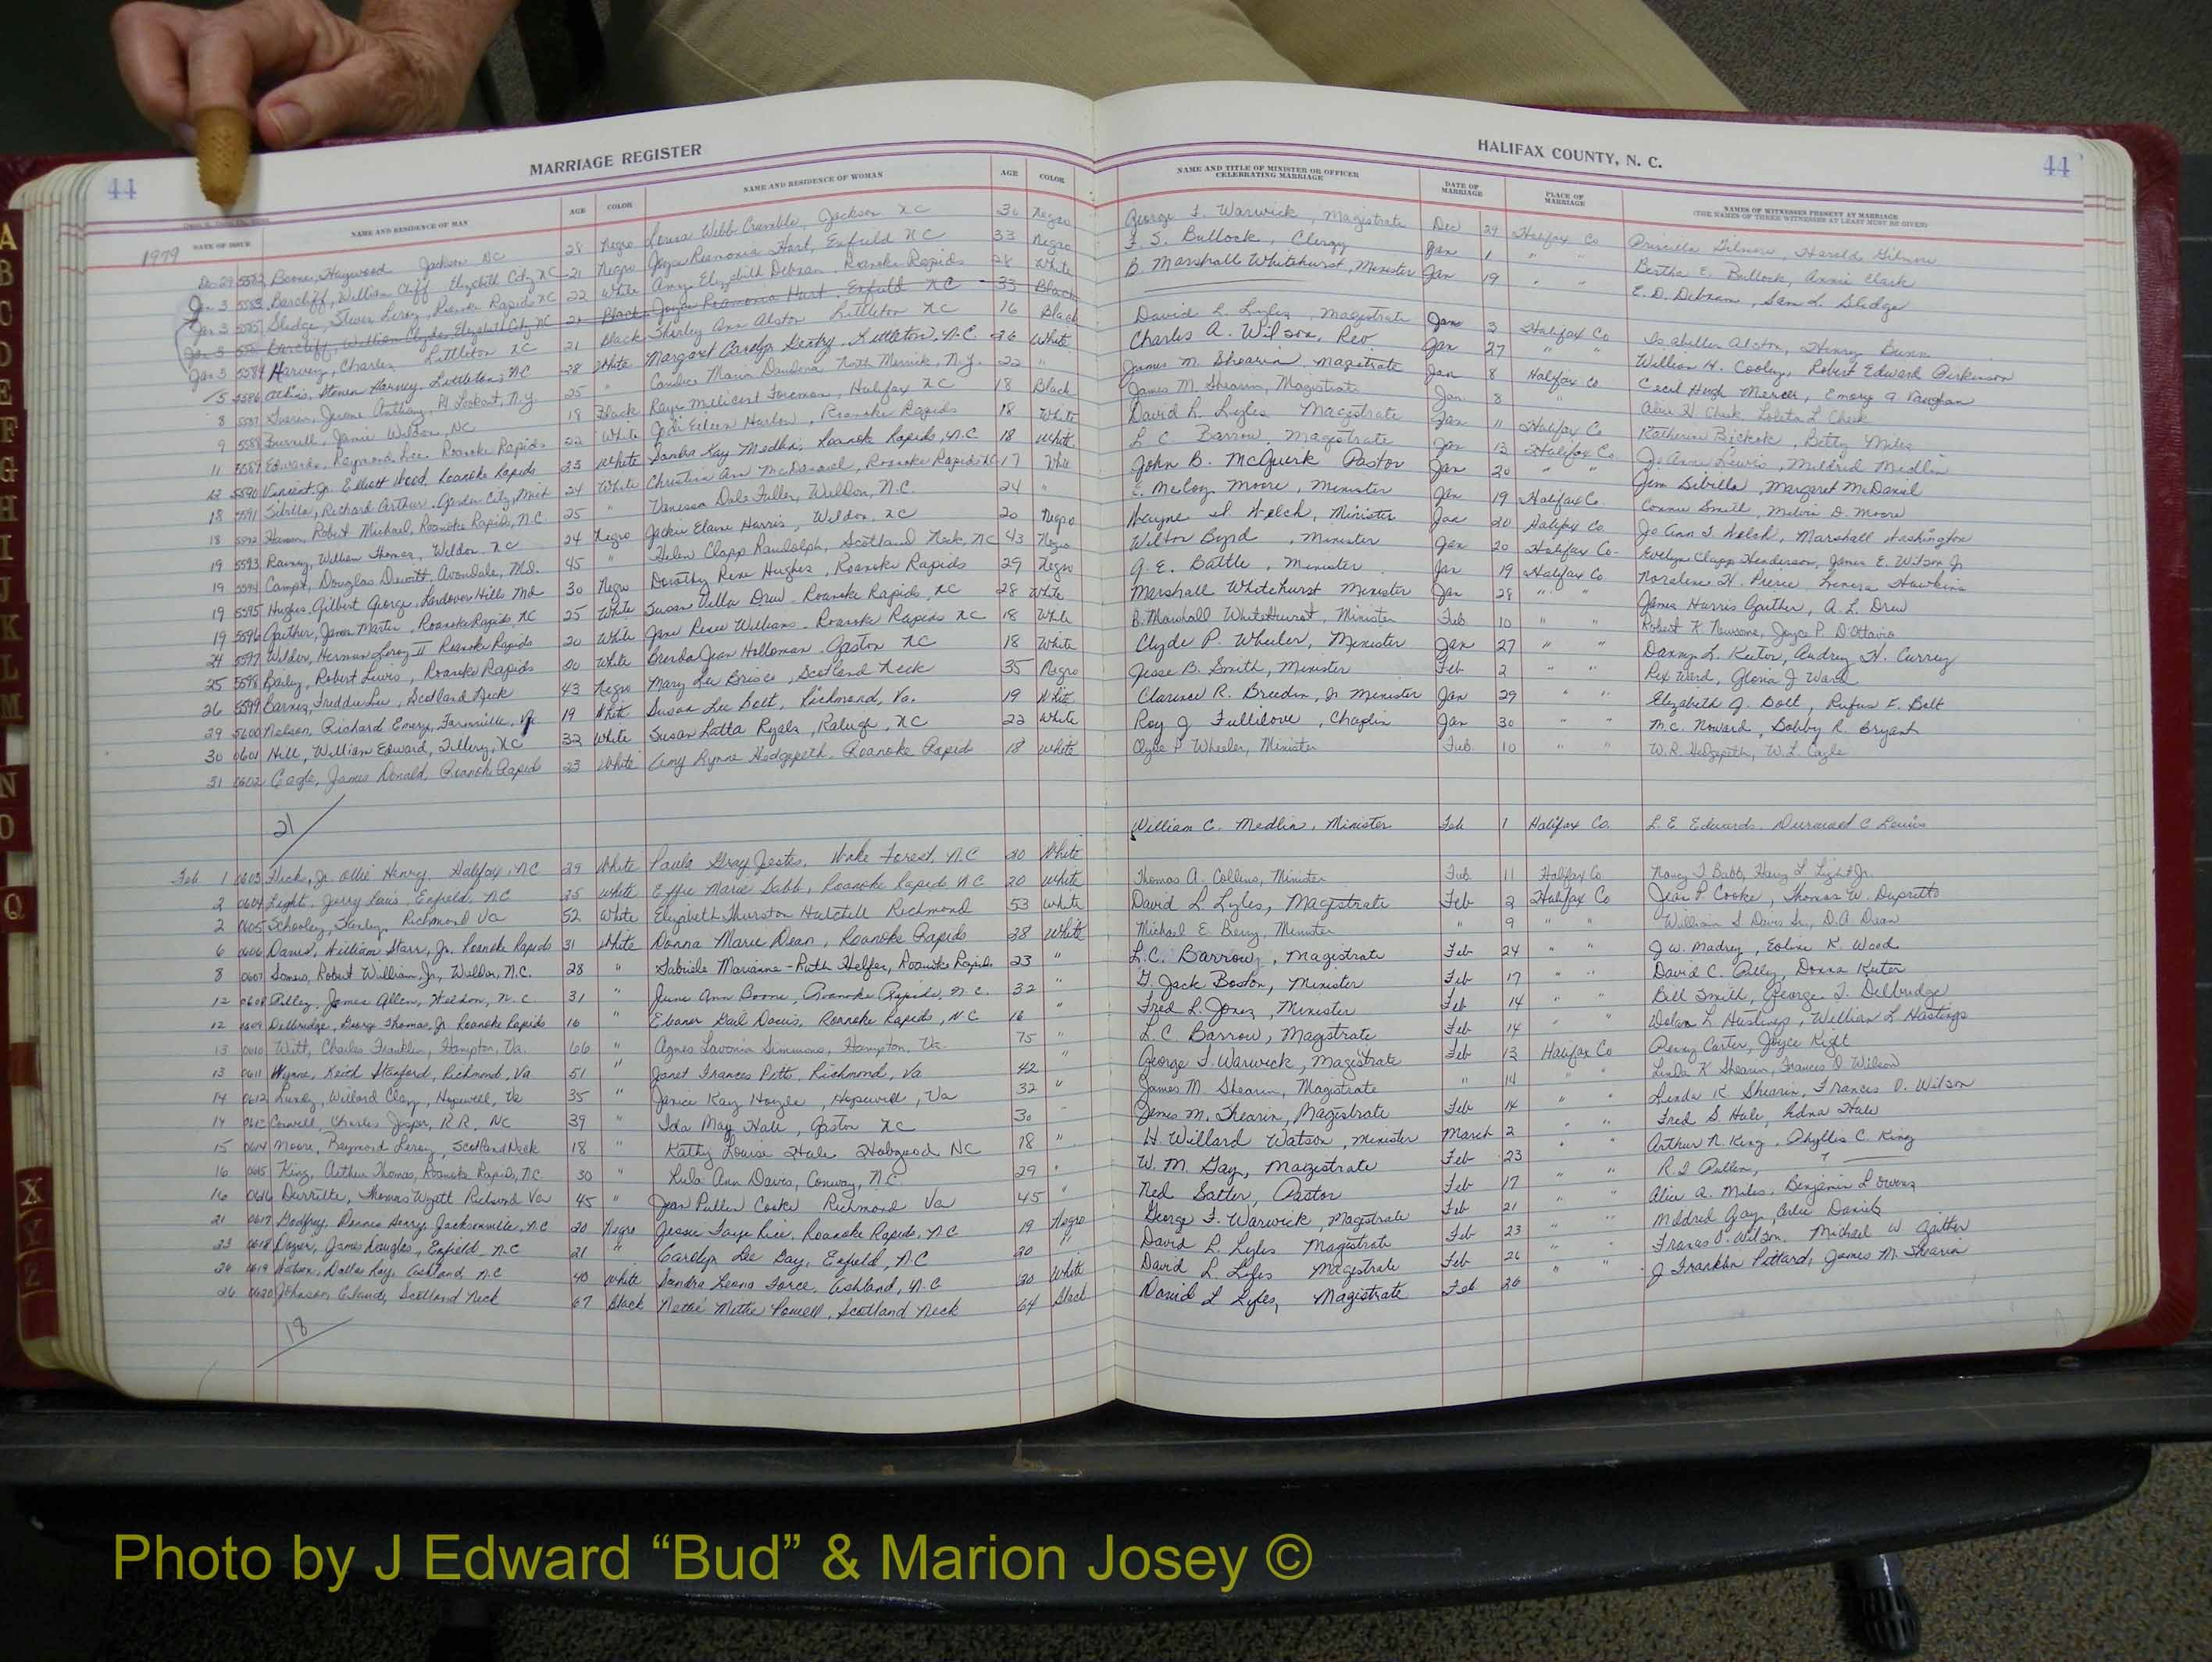 44
MARRIAGE REGISTER
DATE OF ISSUE NAME AND RESIDENCE OF MAN AGE COLOR NAME AND RESIDENCE OF WOMAN AGE COLOR
1979
Dec 29 5582 Boone, Haywood Jackson NC 28 Negro Webb Jackson NC Negro
Jan 3 5583 Barcliff, William Cliff Elizabeth City, NC 21 Negro Joyce Reamonia Hart, Enfield NC 33 Negro
Jan 3 5585 Sledge, Steven Leroy, Roanoke Rapids NC 22 White Amy Elizabeth Debnam Roanoke Rapids 28 White
Jan 3 Barcliff, William Clyde, Elizabeth City NC 21 Black Joyce Reamonia Hart Enfield NC 33 Black
Jan 3 5584 Harvey, Charles Littleton NC 21 Black Shirley Ann Alston Littleton NC 16 Black
5 5586 Steven Harvey Littleton, NC 28 White Margaret Carolyn Littleton, N.C. 26 White
8 5587 Jerome Anthony, Pt Lookout, N.Y. 25 " Candice Maria North Merrick, N.Y. 22 "
9 5588 Jamie Weldon, NC 18 Black Raye Millicent Foreman, Halifax NC 18 Black
11 5589 Edwards, Raymond Lee Roanoke Rapids 22 White Jodi Eileen Harlow, Roanoke Rapids 18 White
12 5590 Vincent, Jr. Elliott Wood, Roanoke Rapids 23 White Sandra Kay Medlin, Roanoke Rapids, N.C. 18 White
18 5591 Sibilla, Richard Arthur, Garden City, Mich 24 White Christina Ann McDaniel, Roanoke Rapids NC 17 White
18 5592 Robert Michael, Roanoke Rapids, N.C. 25 " Vanessa Dale Fuller, Weldon, N.C. 24 "
19 5593 William Thomas, Weldon, NC 24 Negro Jackie Elaine Harris, Weldon, NC 20 Negro
19 5594 Douglas Dewitt, Avondale, Md. 45 " Helen Clapp Randolph, Scotland Neck, NC 43 Negro
19 5595 Hughes, Gilbert George, Landover Hills Md 30 Negro Dorothy Rene Hughes, Roanoke Rapids 29 Negro
19 5596 Gaither, James Martin, Roanoke Rapids NC 25 White Susan Drew Roanoke Rapids, NC 28 White
24 5597 Wilder, Herman Leroy II Roanoke Rapids 20 White Jane Renee Williams Roanoke Rapids NC 18 White
25 5598 Bailey, Robert Lewis, Roanoke Rapids 20 White Brenda Jean Holloman Gaston NC 18 White
26 5599 Barnes, Freddie Lee, Scotland Neck 43 Negro Mary Lee Brisco, Scotland Neck 35 Negro
29 5600 Nelson, Richard Emery, Farmville, Va 19 White Susan Lee Bolt, Richmond, Va. 19 White
30 0601 Hill, William Edward, Tillery, NC 32 White Susan Latta Ryals, Raleigh, NC 22 White
31 0602 Cagle, James Donald, Roanoke Rapids 23 White Amy Lynne Hedgepeth Roanoke Rapids 18 White
21
Feb 1 0603 Jr. Ollie Henry, Halifax, NC 29 White Paula Gray Wake Forest, N.C 20 White
2 0604 Light, Jerry Enfield, NC 25 White Effie Marie Babb, Roanoke Rapids NC 20 White
2 0605 Schooley, Stanley, Richmond Va 52 White Elizabeth Thurston Hatchell Richmond 53 White
6 0606 Davis, William Starr, Jr. Roanoke Rapids 31 White Donna Marie Dean, Roanoke Rapids 28 White
8 0607 Robert William, Jr., Weldon, N.C. 28 " Gabriele Marianne-Ruth Helfer, Roanoke Rapids 23 "
12 0608 Pilley, James Allen, Weldon, N.C. 31 " June Ann Boone, Roanoke Rapids, N.C. 32 "
12 0609 Delbridge, George Thomas, Jr Roanoke Rapids 16 " Eleanor Gail Davis, Roanoke Rapids, NC 16 "
13 0610 Witt, Charles Franklin, Hampton, Va. 66 " Agnes Lavonia Simmons, Hampton, Va. 75 "
13 0611 Wynne, Keith Stanford, Richmond, Va 51 " Janet Frances Pitt, Richmond, Va 42
14 0612 Willard Clay, Hopewell, Va 35 " Janice Kay Hopewell, Va 32 "
14 Charles Jasper, R.R, NC 39 " Ida May Hale, Gaston NC 30
15 0614 Moore, Raymond Leroy, Scotland Neck 18 " Kathy Louise Hale Hobgood NC 18 "
16 0615 King, Arthur Thomas, Roanoke Rapids, NC 30 " Lula Ann Davis, Conway, N.C. 29 "
16 0616 Thomas Wyatt Richmond Va 45 " Jean Pullen Cooke Richmond Va 45 "
21 0617 Godfrey, Dennis Henry, Jacksonville, N.C 20 Negro Jessie Faye Roanoke Rapids, NC 19 Negro
23 0618 James Douglas, Enfield, N.C 21 " Carolyn Lee Day, Enfield, N.C 20 "
26 0619 Watson, Dallas Ray, Ashland N.C 40 White Sandra Leona Force, Ashland, N.C 20 White
26 0620 Johnson, Claude, Scotland Neck 67 Black Nettie Mettie Powell, Scotland Neck 64 Black
18
HALIFAX COUNTY, N. C.
44
NAME AND TITLE OF MINISTER OR OFFICER CELEBRATING MARRIAGE DATE OF MARRIAGE PLACE OF MARRIAGE NAMES OF WITNESSES PRESENT AT MARRIAGE
(THE NAMES OF THREE WITNESSES AT LEAST MUST BE GIVEN)
George F. Warwick, Magistrate Dec 29 Halifax Co Priscilla Gilmore, Harold Gilmore
S. Bullock, Clergy Jan 1 " " Bertha E. Bullock, Annie Clark
B. Marshall Whitehurst, Minister Jan 19 " " E. D. Debnam, Sam L. Sledge
David L. Lyles, Magistrate Jan 3 Halifax Co Alston, Henry
Charles A. Wilson, Rev. Jan 27 " " William H. Cooley, Robert Edward Perkinson
James M. Shearin, Magistrate Jan 8 Halifax Co Cecil Hugh Mercer, Emory G Vaughan
James M. Shearin, Magistrate Jan 8 " Alice H. Cheek Loleta L Cheek
David L. Lyles Magistrate Jan 11 Halifax Co Katherine Betty Miles
L. C. Barrow, Magistrate Jan 13 Halifax Co. Jo Anne Lewis, Mildred Medlin
John B. McGuirk Pastor Jan 20 " " Jim Sibilla, Margaret McDaniel
E. McCoy Moore, Minister Jan 19 Halifax Co. Connie Smith, Melvin D. Moore
Wayne Welch, Minister Jan 20 Halifax Co. Jo Ann Welch, Marshall Washington
Wilton Byrd, Minister Jan 20 Halifax Co Evelyn Clapp Henderson, James E. Wilson Jr
G. E. Battle, Minister Jan 19 Halifax Co Noralene H. Pierce Hawkins
Marshall Whitehurst Minister Jan 28 " " James Harris Gaither, A. L. Drew
B. Marshall Whitehurst, Minister Feb 10 " " Robert K Newsome, Joyce P. D'Ottavio
Clyde P. Wheeler, Minister Jan 27 " " Danny L. Keeter, Audrey H. Currey
Jesse B. Smith, Minister Feb 2 " " Rex Ward, Gloria J Ward
Clarence R. Breedin, Jr Minister Jan 29 " " Elizabeth J. Bolt, Rufus F. Bolt
Roy J Fullilove, Chaplin Jan 30 " " M.C. Howard, Bobby R. Bryant
Clyde P. Wheeler, Minister Feb. 10 " " W.R. Hedgepeth, W.L. Cagle
William C. Medlin, Minister Feb 1 Halifax Co. L. E. Edwards C Lewis
Thomas A. Collins, Minister Feb. 11 Halifax Co. Nancy T Babb, Harry L Light Jr.
David L. Lyles, Magistrate Feb 2 Halifax Co Jean P. Cooke, Thomas W.
Michael E. Berry, Minister " 9 " " William S Davis Sr., D.A. Dean
L.C. Barrow, Magistrate Feb 24 " " J W. Madrey, Eoline K. Wood
G. Jack Boston, Minister Feb 17 " " David C. Pilley, Donna Keeter
Fred L. Jones, Minister Feb 14 " " Bill Smith, George T. Delbridge
L.C. Barrow, Magistrate Feb 14 " " L Hastings, William L Hastings
George F. Warwick, Magistrate Feb 13 Halifax Co Penny Carter, Joyce Right
James M. Shearin, Magistrate " 14 " " Linda K Shearin, Frances O Wilson
James M. Shearin, Magistrate Feb 14 " " Linda K Shearin, Frances O. Wilson
H. Willard Watson, Minister March 2 " " Fred S Hale, Edna Hale
W. M. Gay, Magistrate Feb 23 " " Arthur N. King, Phyllis C. King
Ned Salter, Pastor Feb 17 " " R. I Pullen, ?
George F. Warwick, Magistrate Feb 21 " " Alice A. Miles, Benjamin L Owens
David L. Lyles Magistrate Feb 23 " " Mildred Gay, Arlie Daniels
David L Lyles Magistrate Feb 26 " " Frances O. Wilson, Michael W Gaither
David L Lyles, Magistrate Feb 26 J Franklin Pittard, James M. Shearin
A
B
C
D
E
F
G
H
I
J
K
L
M
N
O
Q
X
Y
Z
Photo by J Edward “Bud” & Marion Josey ©